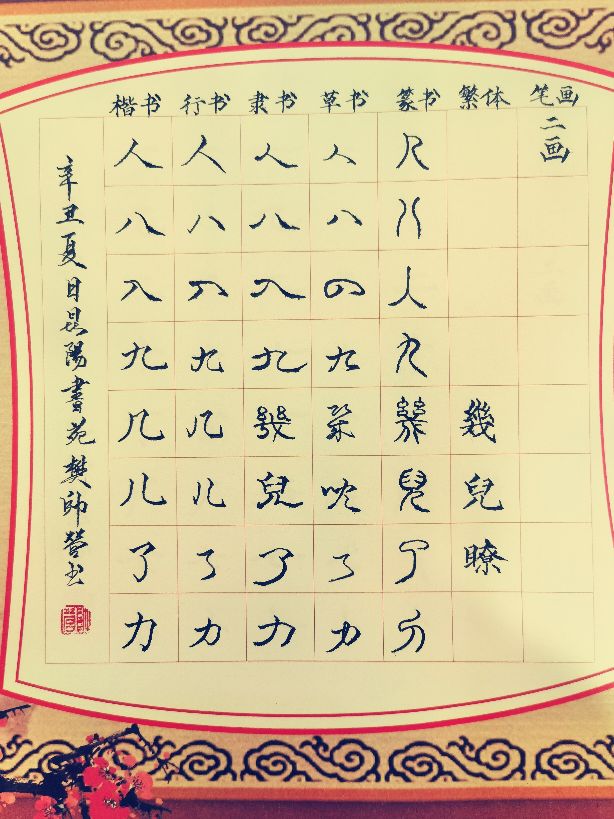 楷书 行书 隶书 草书 篆书 繁体 笔画
二画
人 人 人 人 人
八 八 八 八 八
入 入 入 入 入
九 九 九 九 九
几 几 幾 幾 幾 幾
儿 儿 兒 兒 兒 兒
了 了 了 了 了 瞭
力 力 力 力 力
辛丑夏日昆陽書苑樊師營书